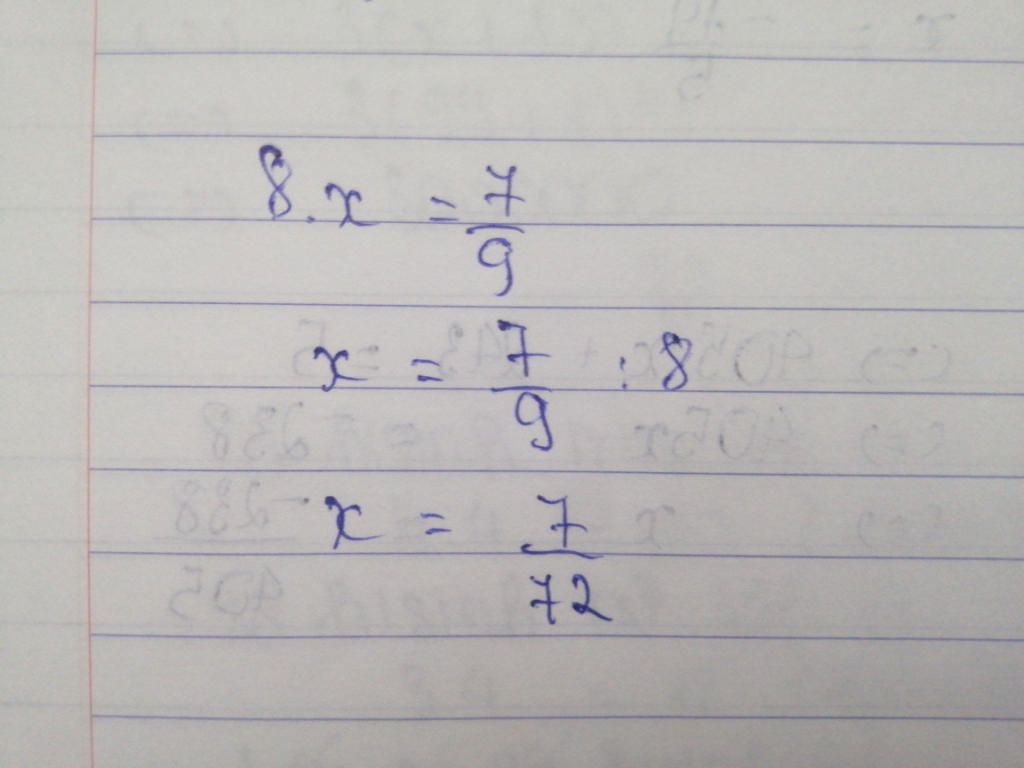 8.x = 7/9
x = 7/9 : 8
x = 7/72